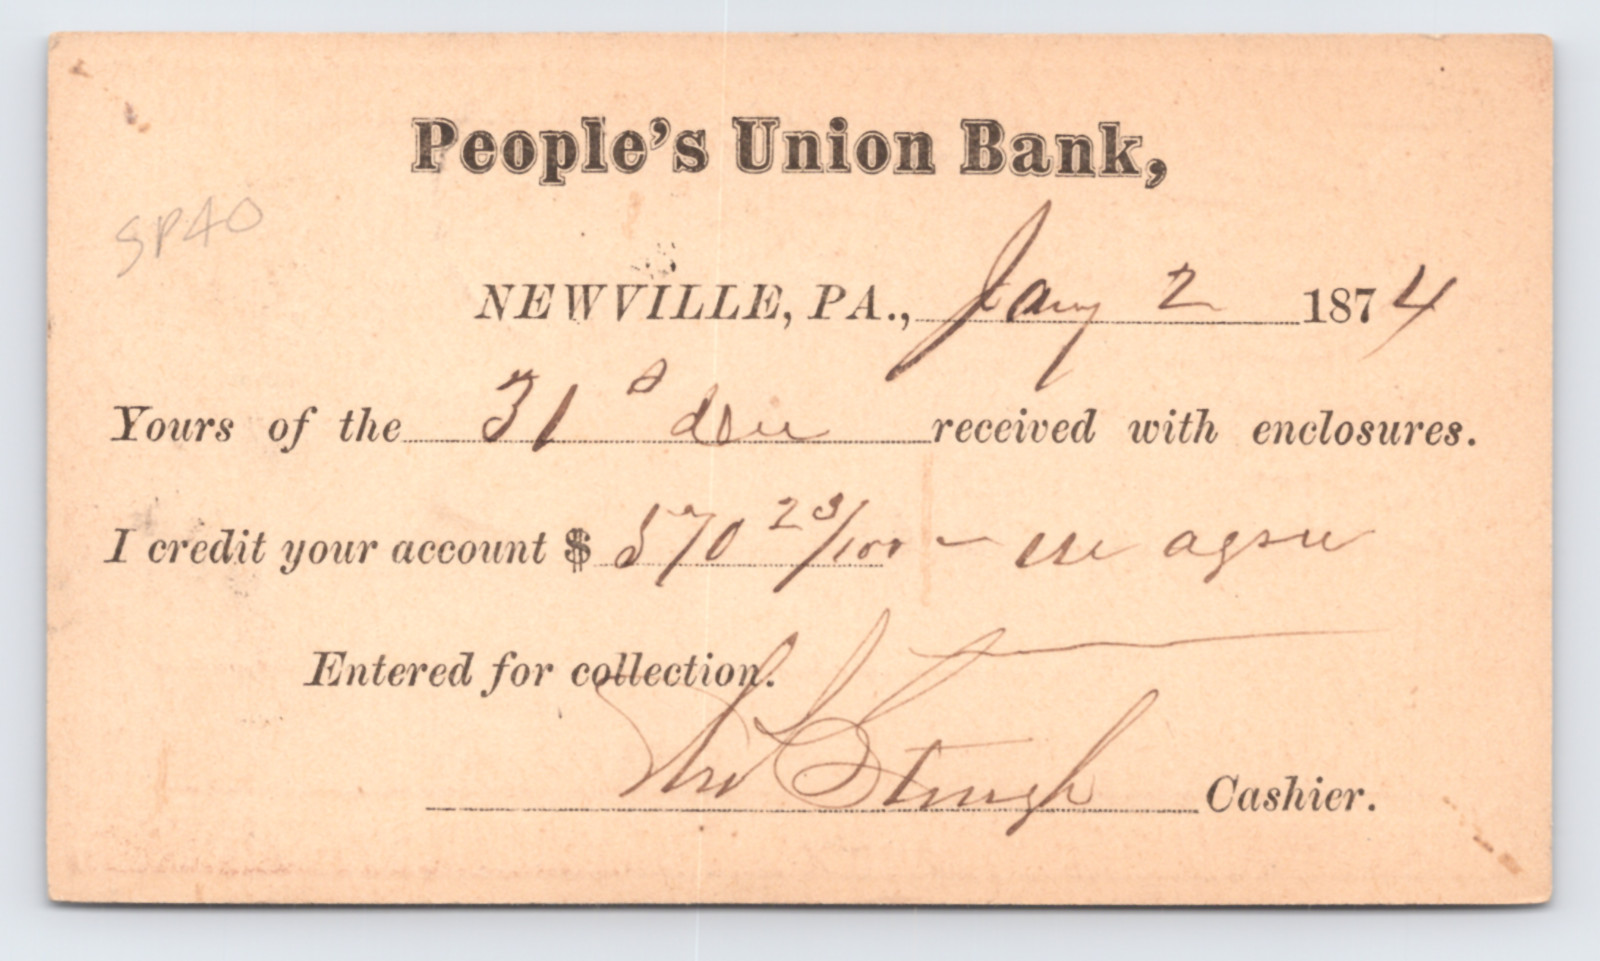 People's Union Bank,
SP40
NEWVILLE, PA., Jany 2 1874
Yours of the 31 received with enclosures.
I credit your account $ 570 23/100 - we agree
Entered for collection.
Cashier.